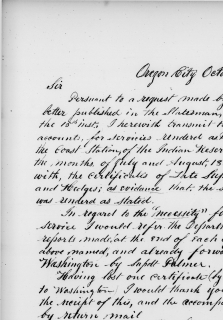 Oregon City Octo
Sir
Pursuant to a request made b
letter published in the Statesman,
the 13th inst, I herewith transmit t
account, for services rendered as
the Coast Station, of the Indian Reser
the months of July and August, 18
with, the certificates of
and Hedges; as evidence that the s
was rendered as stated.
In regard to the "necessity" f
service I would refer the Departm
reports made, at the end of each
above named, and already forwa
Washington by Supdt Palmer.
Having lost one certificate (by
to Washington) I would thank yo
the receipt of this, and the accomp
by return mail